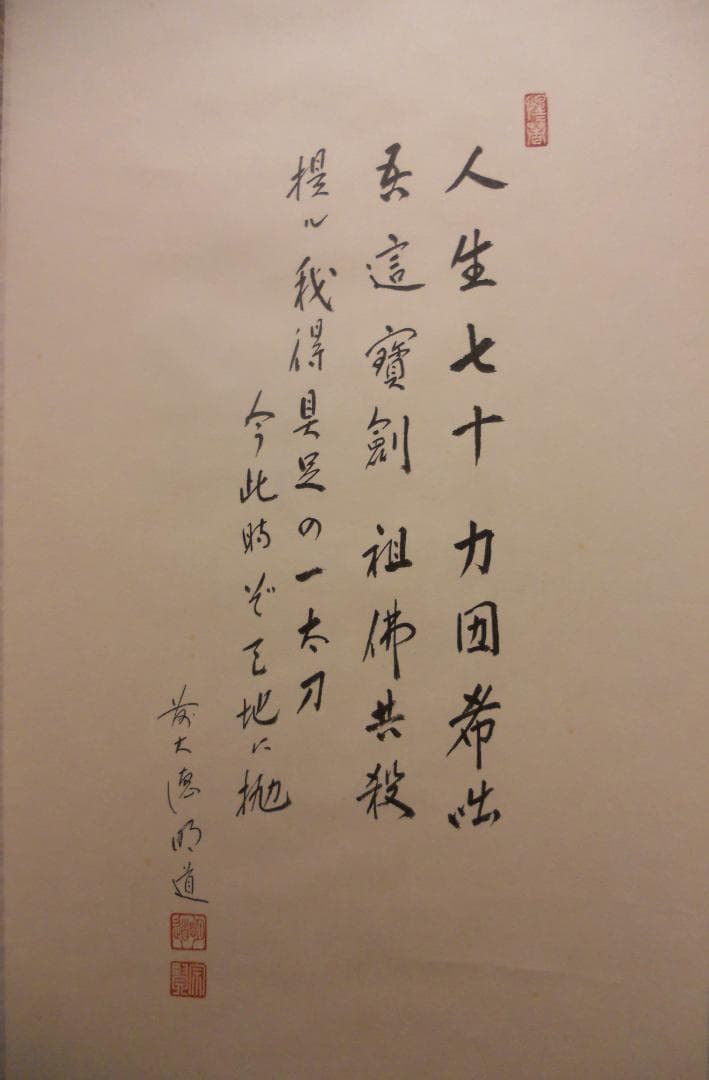 人生七十 力囲希咄
吾這寶劍 祖佛共殺
提ル我得具足の一太刀
今此時ぞ天地ニ抛
前大徳明道